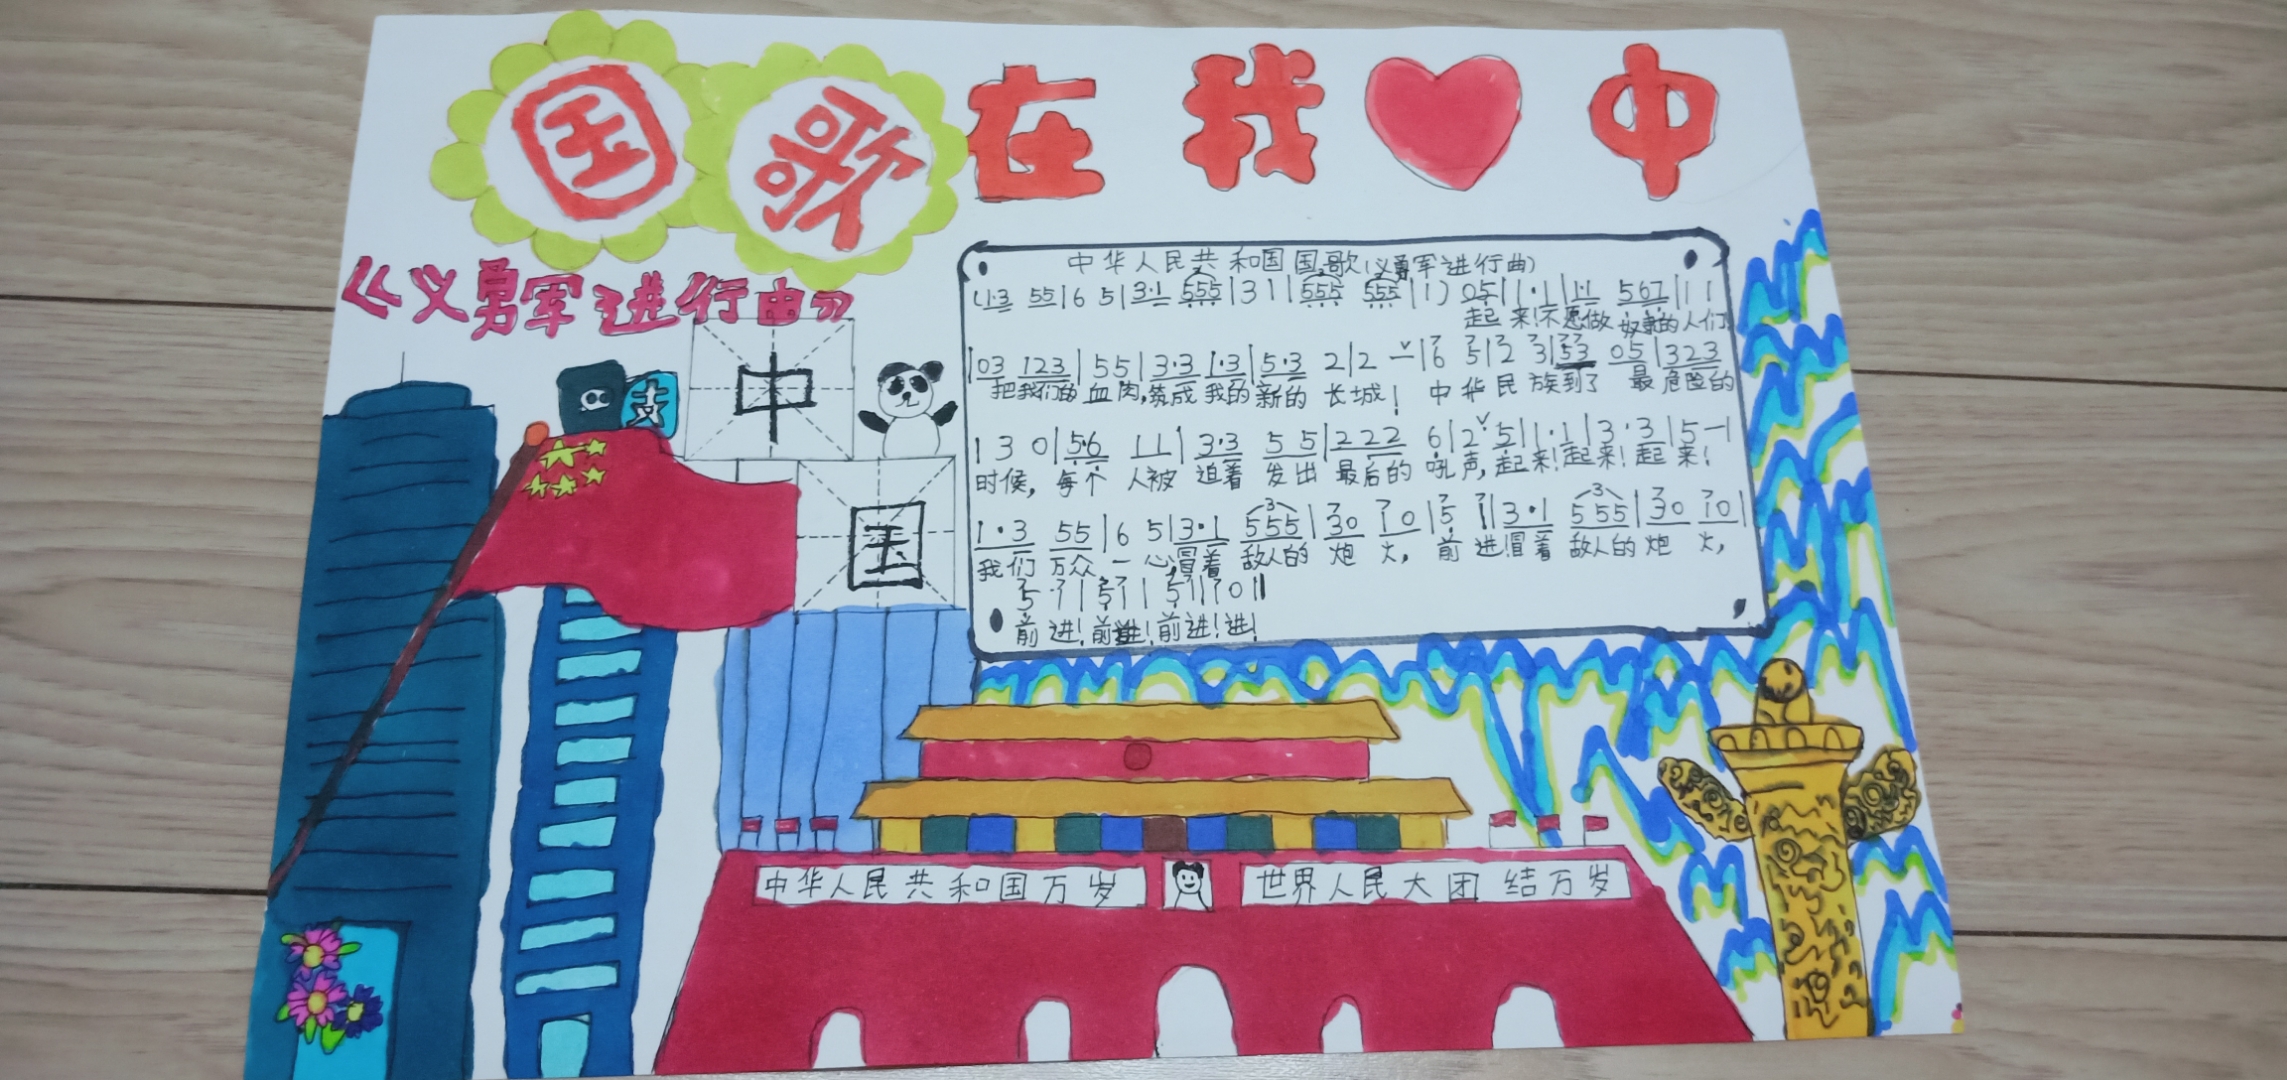 国歌在我中
《义勇军进行曲》
中
国
中华人民共和国国歌(义勇军进行曲)
(1·3 55|6 5|3·1 555|31|555 555|1) 05|1·1|1·1 567|11
起来!不愿做奴隶的人们
|03 123|55|3·3 1·3|5·3 2|2 —|6 5|2 3|53 05|323
把我们的血肉,筑成我的新的长城!中华民族到了最危险的
|3 0|5·6 11|3·3 5 5|222 6|2 5|1·1|3·3|5—|
时候,每个人被迫着发出最后的吼声,起来!起来!起来!
1·3 55|6 5|3·1 555|30 10|5 1|3·1 555|30 10|
我们万众一心,冒着敌人的炮火,前进!冒着敌人的炮火,
5 1|51|51|10‖
前进!前进!前进!进!
中华人民共和国万岁
世界人民大团结万岁